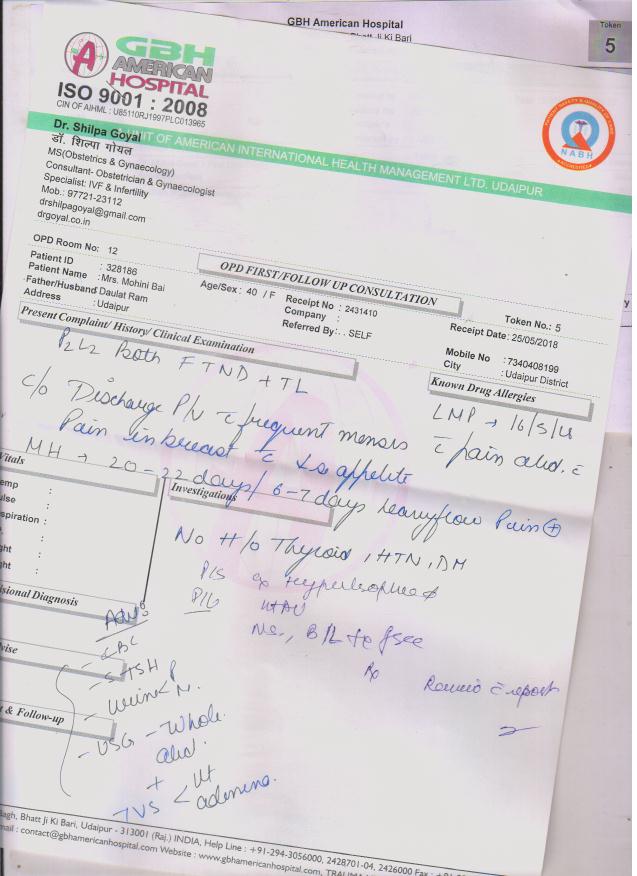 GBH American Hospital
Bhatt Ji Ki Bari
Token
5
GBH
AMERICAN
HOSPITAL
ISO 9001 : 2008
CIN OF AIHML : U85110RJ1997PLC013965
UNIT OF AMERICAN INTERNATIONAL HEALTH MANAGEMENT LTD. UDAIPUR
NABH
Dr. Shilpa Goyal
डॉ. शिल्पा गोयल
MS(Obstetrics & Gynaecology)
Consultant- Obstetrician & Gynaecologist
Specialist: IVF & Infertility
Mob.: 97721-23112
drshilpagoyal@gmail.com
drgoyal.co.in
OPD Room No: 12
OPD FIRST/FOLLOW UP CONSULTATION
Token No.: 5
Patient ID : 328186
Receipt No : 2431410
Receipt Date: 25/05/2018
Patient Name : Mrs. Mohini Bai
Age/Sex : 40 / F
Company :
Father/Husband : Daulat Ram
Referred By : . SELF
Mobile No : 7340408199
Address : Udaipur
City : Udaipur District
Present Complaint/ History/ Clinical Examination
Known Drug Allergies
P2L2 Both FTND + TL
LMP → 16/5/18
c/o Discharge P/V c frequent menses c pain abd. c
Pain in breast c appetite
MH → 20-22 days/ 6-7 days heavy flow Pain +
Vitals
emp :
ulse :
spiration :
ght :
ght :
Investigations
No H/o Thyroid, HTN, DM
P/S Cx Hypertrophied
P/V UtAV
B/L free
Rx Review c report
sional Diagnosis
Adv
- CBC
- S.TSH
- Urine
- USG - Whole
abd.
+
TVS < Ut
adenexa.
vise
t & Follow-up
Bagh, Bhatt Ji Ki Bari, Udaipur - 313001 (Raj.) INDIA, Help Line : +91-294-3056000, 2428701-04, 2426000 Fax :
mail : contact@gbhamericanhospital.com Website : www.gbhamericanhospital.com,